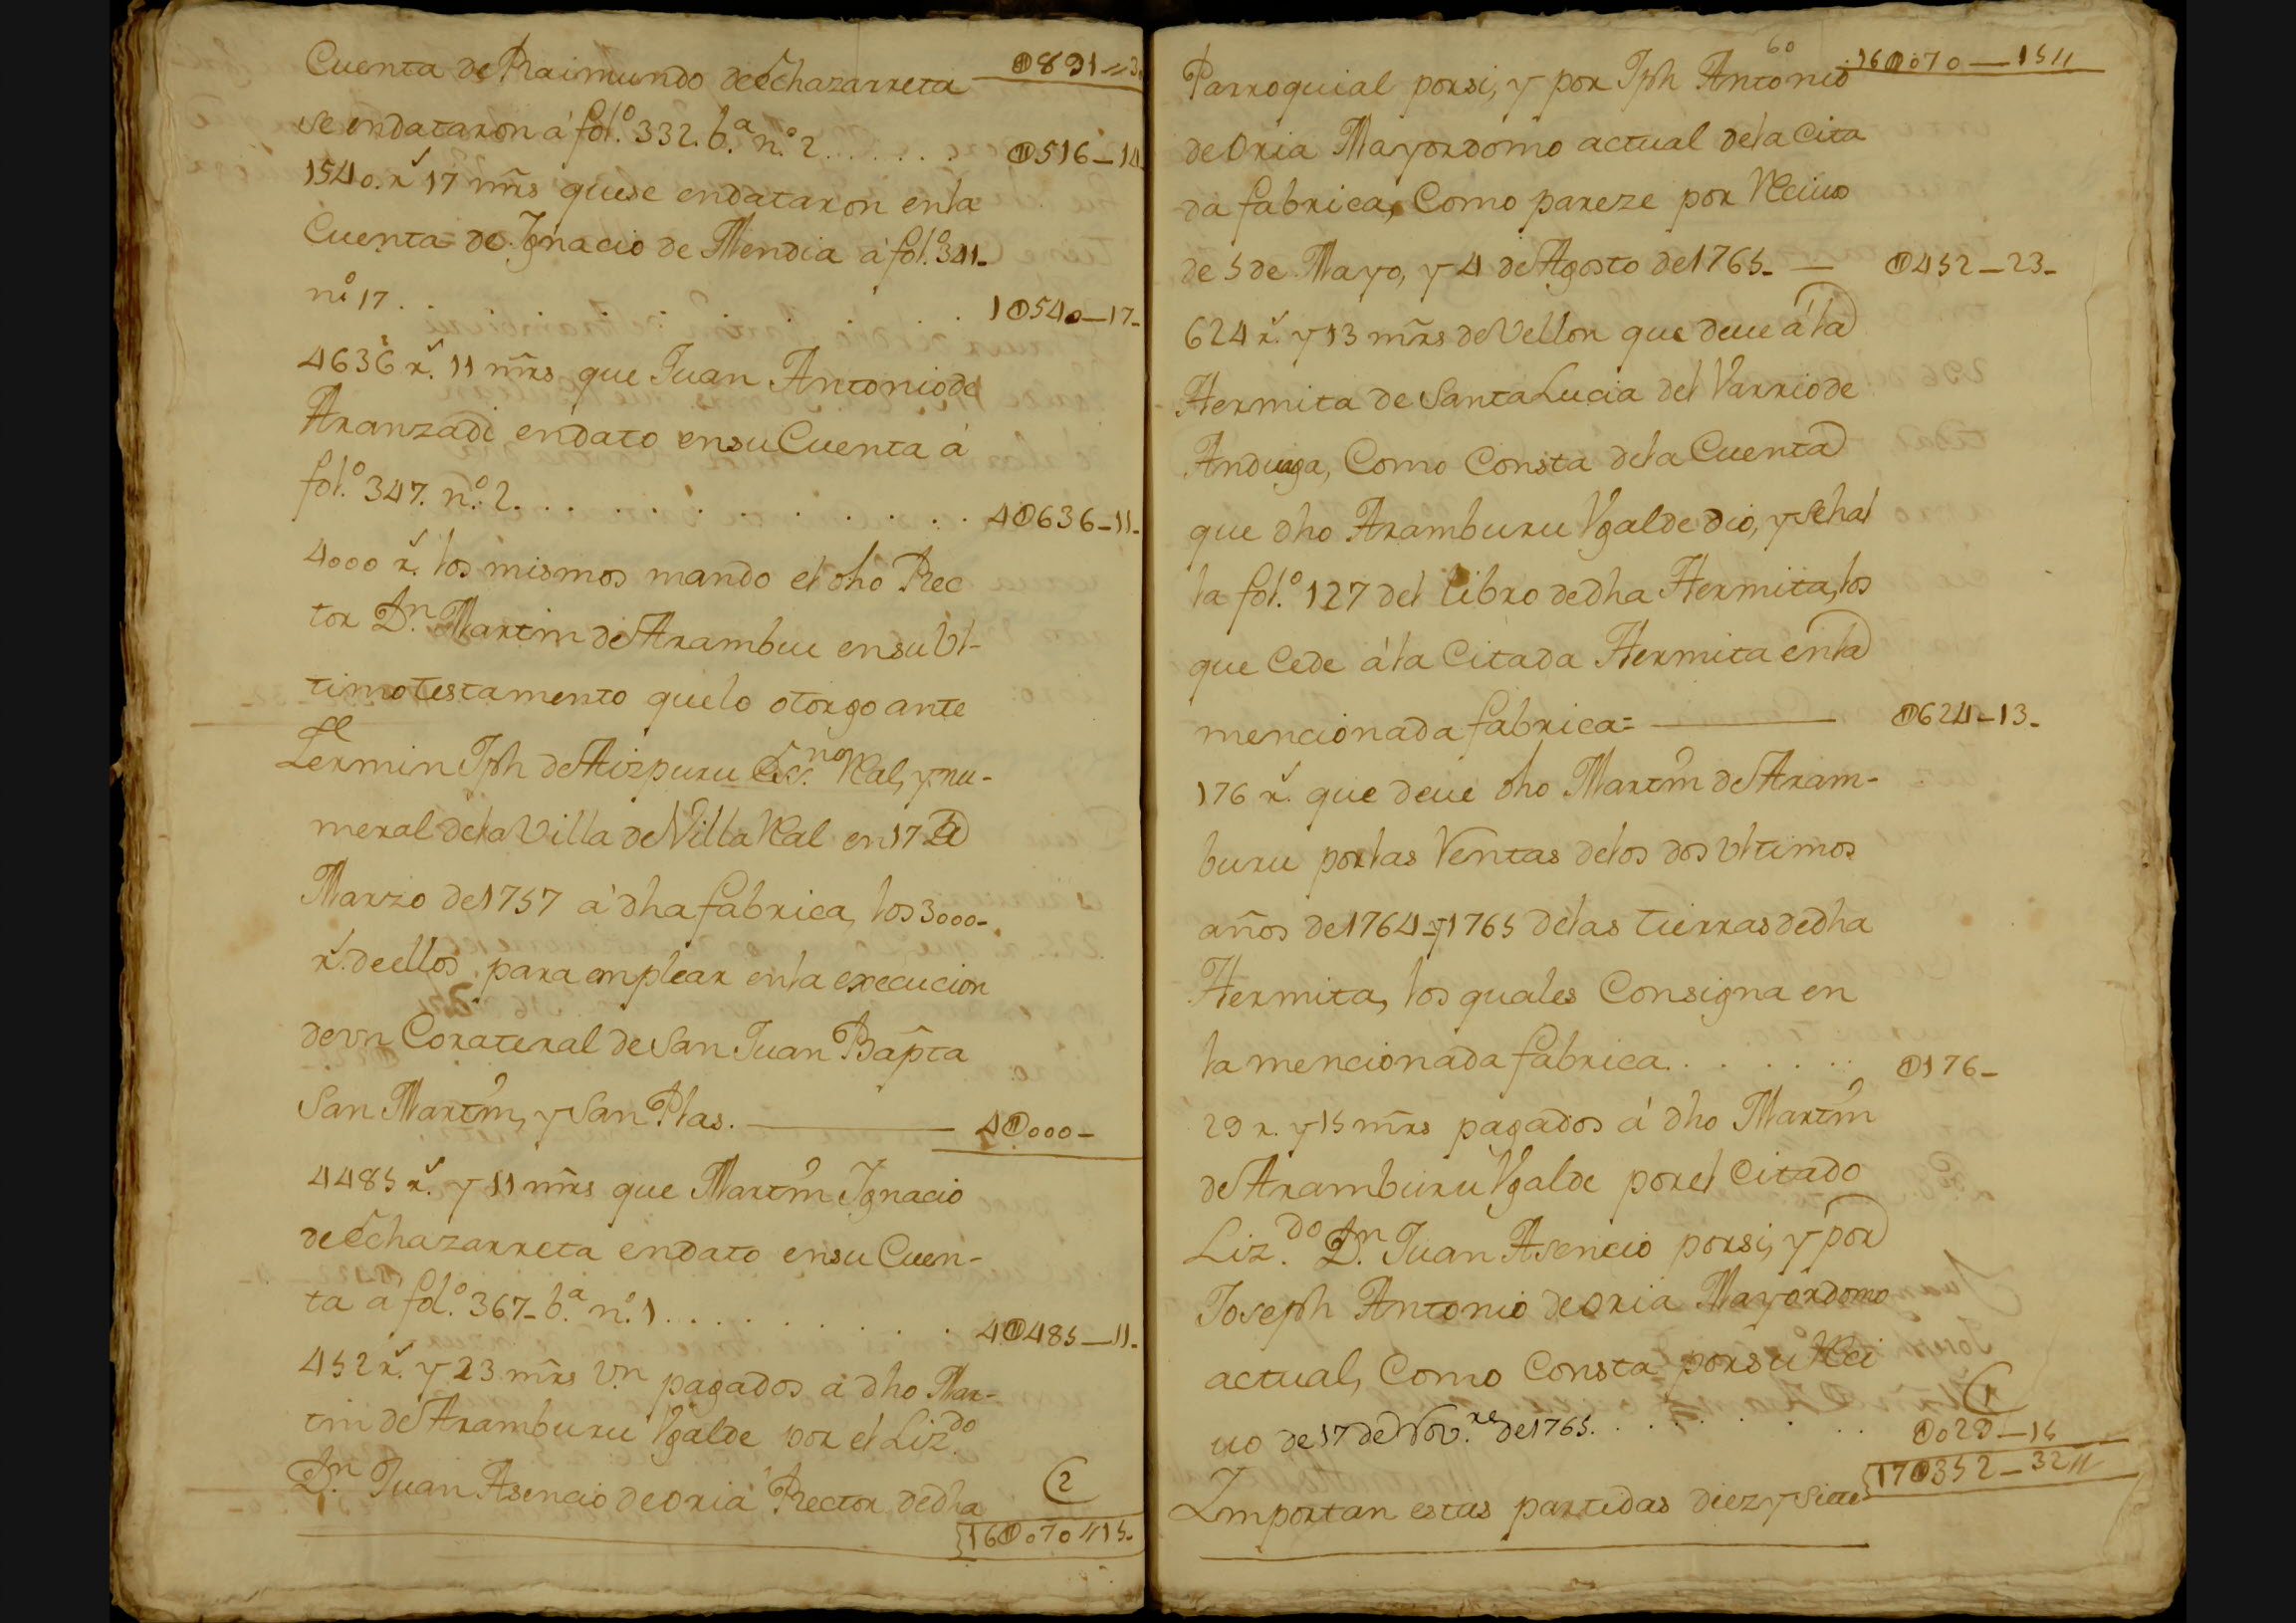 Cuenta de Raimundo de Echazarreta 0891=3
se endataron á fol.º 332. b.ª n.º 2 . . . . . . 0516_14
1540. r.s 17 mr̃s que se endataron en la
Cuenta de Ignacio de Mendia á fol.º 341_
n.º 17 . . . . . . . 10540_17_
4636 r.s 11 mr̃s que Juan Antonio de
Aranzadi endato en su Cuenta á
fol.º 347. n.º 2. . . . . . . . . . . . 40636_11_
4000 r.s los mismos mando el dho Rec
tor D.n Martin de Arambuu en su Vl-
timo testamento que lo otorgo ante
Fermin Jph de Aizpuru Ess.no Ral, y nu-
meral de la Villa de Villa Ral en 17 de
Marzo de 1757 á dha fabrica, los 3000_
r.s de ellos para emplear en la execucion
de vn Corateral de San Juan Bap̃ta
San Martin, y San Blas. 40000_
4485 r.s y 11 mr̃s que Martin Ignacio
de Echazarreta endato en su Cuen-
ta á fol.º 367_ b.ª n.º 1 . . . . . . . . . 40485_11_
452 r.s y 23 mr̃s v.n pagados á dho Mar-
tin de Aramburu Vgalde por el Liz.do
D.n Juan Asencio de Oria Rector de dha 2
160070 " 15.
60 160070_15 "
Parroquial por si, y por Jph Antonio
de Oria Mayordomo actual de la Cita
da fabrica, Como pareze por Reciuo
de 5 de Mayo, y 4 de Agosto de 1765_ 0452_23_
624 r.s y 13 mr̃s de Vellon que deue á la
Hermita de Santa Lucia del Varrio de
Anduaga, Como Consta de la Cuenta
que dho Aramburu Vgalde dio, y se hal
la fol.º 127 del libro de dha Hermita, los
que Cede á la Citada Hermita en la
mencionada fabrica= 0624_13_
176 r.s que deue dho Martin de Aram-
buru por las Ventas de los dos Vltimos
años de 1764_y 1765 de las tierras de dha
Hermita, los quales Consigna en
la mencionada fabrica . . . . . . 0176_
29 r. y 15 mr̃s pagados á dho Martin
de Aramburu Vgalde por el Citado
Liz.do D.n Juan Asencio por si, y por
Joseph Antonio de Oria Mayordomo
actual, Como Consta por su Reci
uo de 17 de Nov.re de 1765. . . . . . . . 0029_15
170352_32 "
Importan estas partidas diez y siete